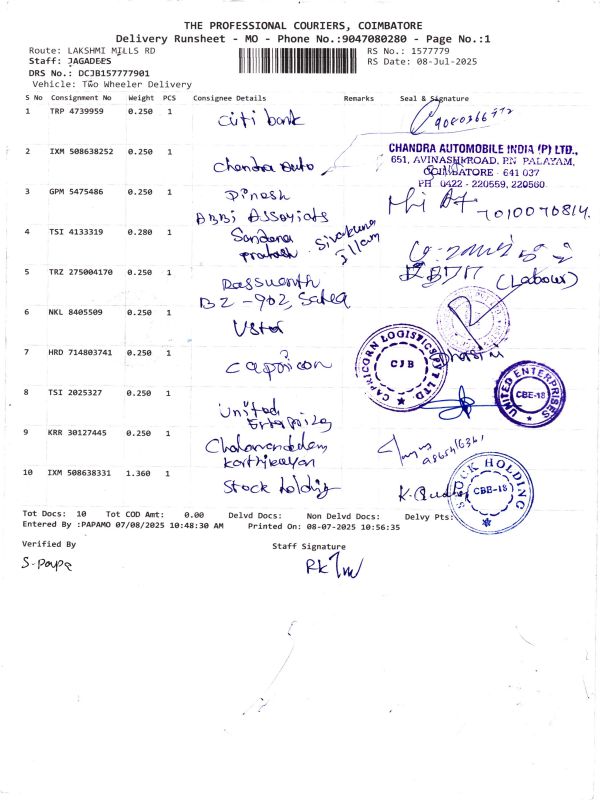 THE PROFESSIONAL COURIERS, COIMBATORE
Delivery Runsheet - MO - Phone No.:9047080280 - Page No.:1
Route: LAKSHMI MILLS RD
RS No.: 1577779
Staff: JAGADEES
RS Date: 08-Jul-2025
DRS No.: DCJB157777901
Vehicle: Two Wheeler Delivery
S No Consignment No Weight PCS Consignee Details Remarks Seal & Signature
1 TRP 4739959 0.250 1 Citi bank
2 IXM 508638252 0.250 1 Chandra Auto
CHANDRA AUTOMOBILE INDIA (P) LTD.,
651, AVINASHI ROAD, P.N. PALAYAM,
COIMBATORE - 641 037
PH 0422 - 220559, 220560
3 GPM 5475486 0.250 1 Dinesh
7010070814.
4 TSI 4133319 0.280 1
5 TRZ 275004170 0.250 1
BZ-902,
(Labour)
6 NKL 8405509 0.250 1
7 HRD 714803741 0.250 1
CAPRICORN LOGISTICS PVT LTD
CJB
8 TSI 2025327 0.250 1 United
UNITED ENTERPRISES
CBE-18
9 KRR 30127445 0.250 1
10 IXM 508638331 1.360 1 Stock holding
STOCK HOLDING
CBE-18
Tot Docs: 10 Tot COD Amt: 0.00 Delvd Docs: Non Delvd Docs: Delvy Pts:
Entered By :PAPAMO 07/08/2025 10:48:30 AM Printed On: 08-07-2025 10:56:35
Verified By Staff Signature
S. Papa